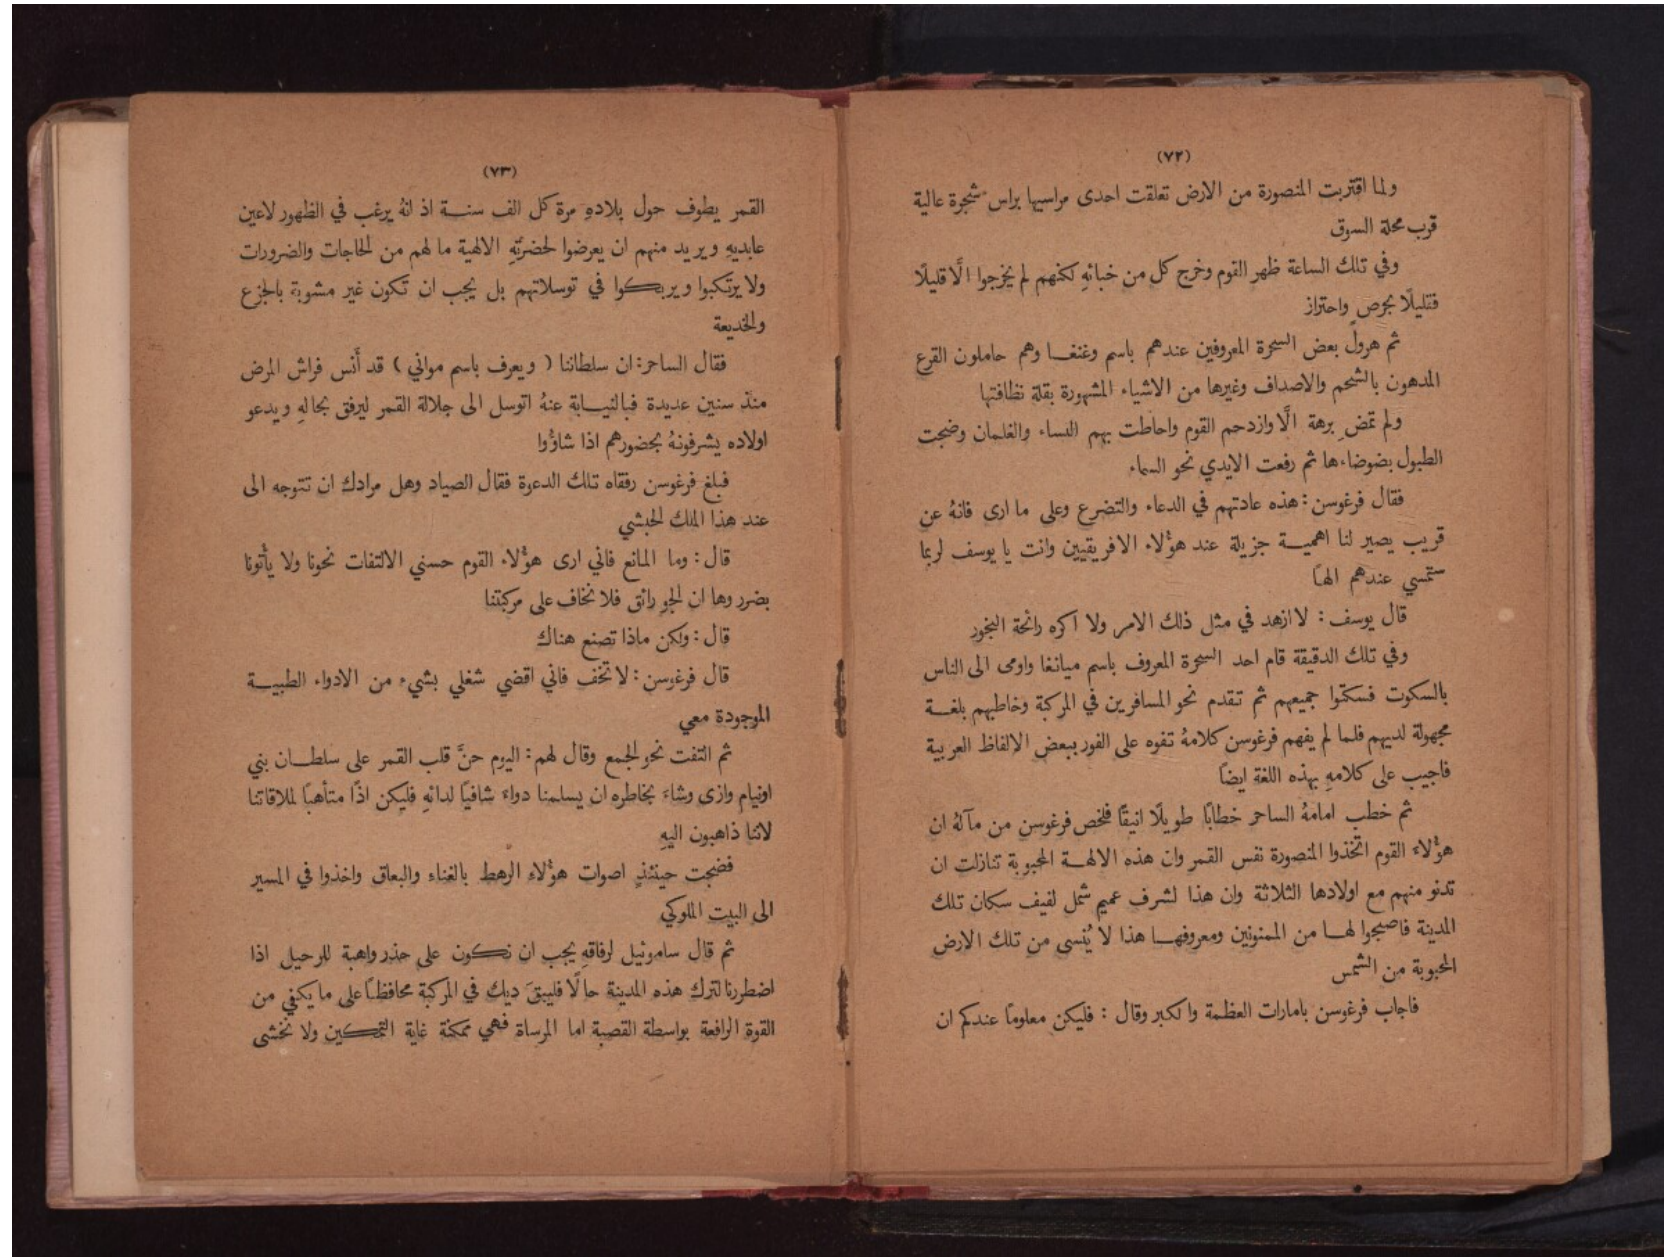 (٧٢)
ولما اقتربت المنصورة من الارض تعلقت احدى مراسيها براس شجرة عالية
قرب محلة السوق
وفي تلك الساعة ظهر القوم وخرج كل من خبائهِ لكنهم لم يخرجوا الَّا قليلًا
فقليلًا بحرصٍ واحتراز
ثم هرول بعض السحرة المعروفين عندهم باسم وغنغا وهم حاملون القرع
المدهون بالشحم والاصداف وغيرها من الاشياء المشهورة بقلة نظافتها
ولم تمضِ برهة الَّا وازدحم القوم واحاطت بهم النساء والغلمان وضجت
الطبول بضوضاءها ثم رفعت الايدي نحو السماء
فقال فرغوسن: هذه عادتهم في الدعاء والتضرع وعلى ما ارى فانهُ عن
قريب يصير لنا اهمية جزيلة عند هؤُلاء الافريقيين وانت يا يوسف لربما
ستمسي عندهم الهًا
قال يوسف: لا ازهد في مثل ذلك الامر ولا اكره رائحة البخور
وفي تلك الدقيقة قام احد السحرة المعروف باسم ميانغا واومى الى الناس
بالسكوت فسكتوا جميعهم ثم تقدم نحو المسافرين في المركبة وخاطبهم بلغة
مجهولة لديهم فلما لم يفهم فرغوسن كلامهُ تفوه على الفور ببعض الالفاظ العربية
فاجيب على كلامهِ بهذه اللغة ايضًا
ثم خطب امامهُ الساحر خطابًا طويلًا انيقًا فلخص فرغوسن من مآلهُ ان
هؤُلاء القوم اتخذوا المنصورة نفس القمر وان هذه الالهة المحبوبة تنازلت ان
تدنو منهم مع اولادها الثلاثة وان هذا لشرف عميم شمل لفيف سكان تلك
المدينة فاصبحوا لها من الممنونين ومعروفها هذا لا يُنسى من تلك الارض
المحبوبة من الشمس
فاجاب فرغوسن بامارات العظمة والكبر وقال: فليكن معلومًا عندكم ان
(٧٣)
القمر يطوف حول بلادهِ مرة كل الف سنة اذ انهُ يرغب في الظهور لاعين
عابديهِ ويريد منهم ان يعرضوا لحضرتهِ الالهية ما لهم من الحاجات والضرورات
ولا يرتكبوا ويربكوا في توسلاتهم بل يجب ان تكون غير مشوبة بالجزع
والخديعة
فقال الساحر: ان سلطاننا (ويعرف باسم مواني) قد أَنس فراش المرض
منذ سنين عديدة فبالنيابة عنهُ اتوسل الى جلالة القمر ليرفق بحالهِ ويدعو
اولاده يشرفونهُ بحضورهم اذا شاؤُوا
فبلغ فرغوسن رفقاه تلك الدعوة فقال الصياد وهل مرادك ان تتوجه الى
عند هذا الملك الحبشي
قال: وما المانع فاني ارى هؤُلاء القوم حسني الالتفات نحونا ولا يأْتونا
بضرر وها ان الجو رائق فلا نخاف على مركبتنا
قال: ولكن ماذا تصنع هناك
قال فرغوسن: لا تخف فاني اقضي شغلي بشيء من الادواء الطبية
الموجودة معي
ثم التفت نحو الجمع وقال لهم: اليوم حنَّ قلب القمر على سلطان بني
اونيام وازى وشاءَ بخاطره ان يسلمنا دواءً شافيًا لدائهِ فليكن اذًا متأَهبًا لملاقاتنا
لاننا ذاهبون اليهِ
فضجت حينئذٍ اصوات هؤُلاءِ الرهط بالغناء والبعاق واخذوا في المسير
الى البيت الملوكي
ثم قال ساموئيل لرفاقهِ يجب ان نكون على حذر واهبة للرحيل اذا
اضطررنا لترك هذه المدينة حالًا فليبقَ ديك في المركبة محافظًا على ما يكفي من
القوة الرافعة بواسطة القصبة اما المرساة فهي ممكنة غاية التمكين ولا نخشى